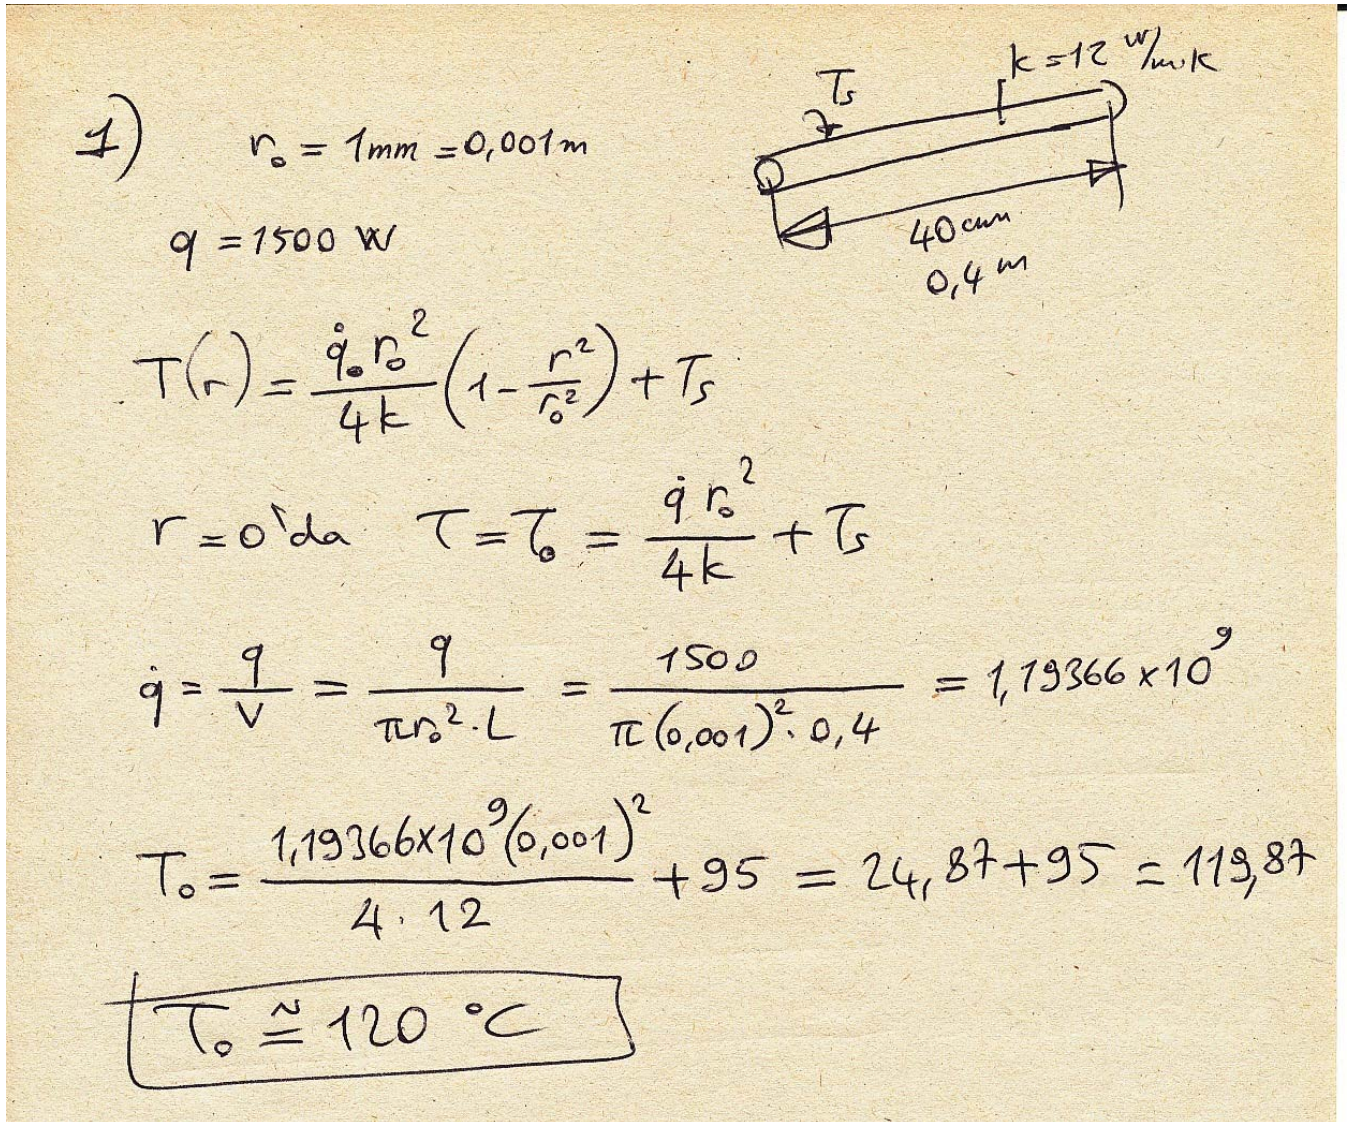 1) r₀ = 1mm = 0,001m
q = 1500 W
Ts
k = 12 W/m.K
40 cm
0,4 m
T(r) = q̇₀ r₀² / 4k (1 - r²/r₀²) + Ts
r = 0'da T = T₀ = q̇ r₀² / 4k + Ts
q̇ = q/V = q / πr₀².L = 1500 / π(0,001)². 0,4 = 1,19366 x 10⁹
T₀ = 1,19366x10⁹(0,001)² / 4 . 12 + 95 = 24,87+95 = 119,87
T₀ ≅ 120 °C